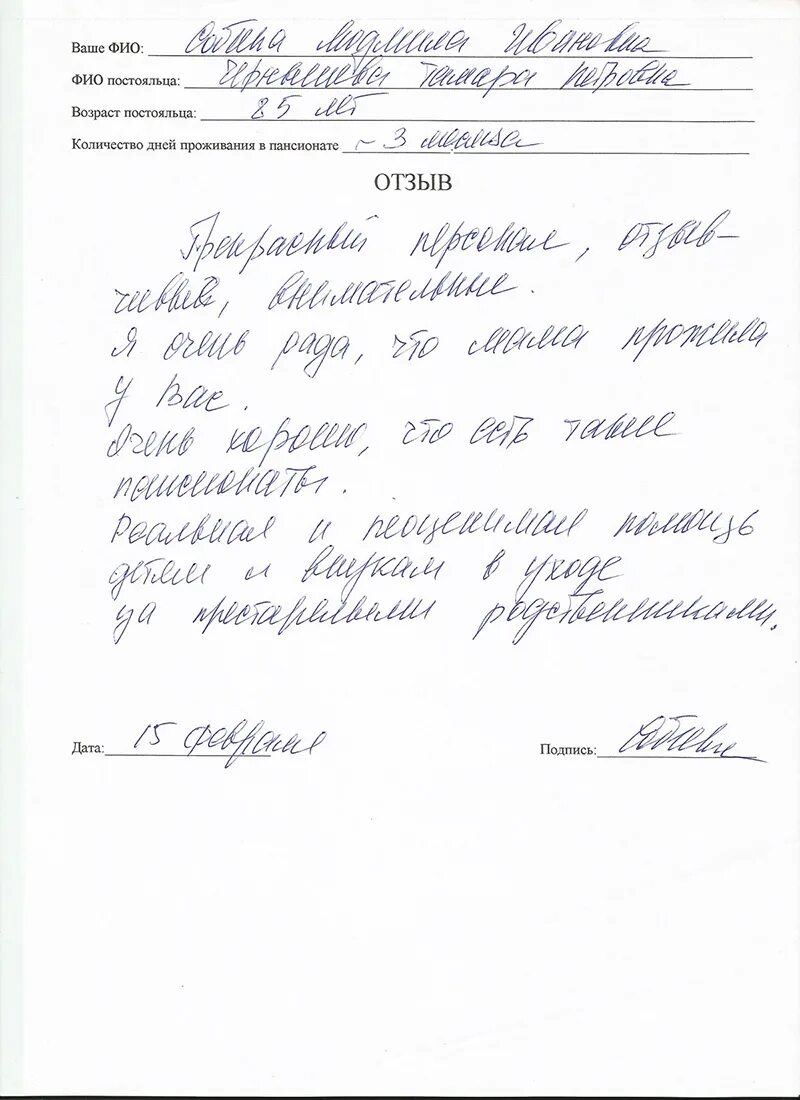 Ваше ФИО: Собина Людмила Ивановна
ФИО постояльца: Чернышева Тамара Петровна
Возраст постояльца: 85 лет
Количество дней проживания в пансионате ~ 3 месяца
ОТЗЫВ
Прекрасный персонал, отзыв-
чивый, внимательные.
Я очень рада, что мама прожила
у Вас.
Очень хорошо, что есть такие
пансионаты.
Реальная и неоценимая помощь
детям и внукам в уходе
за престарелыми родственниками.
Дата: 15 февраля
Подпись: